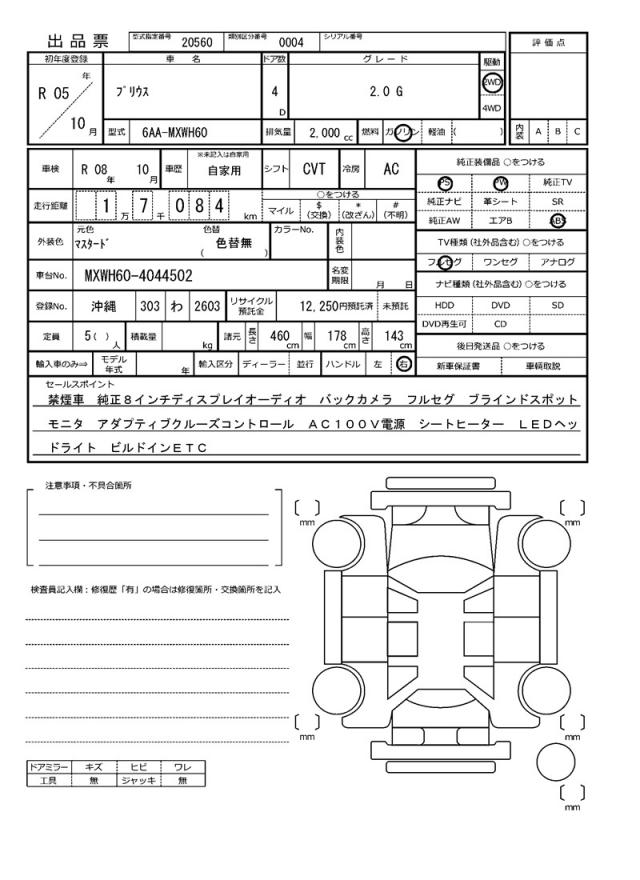 出品票 型式指定番号 20560 類別区分番号 0004 シリアル番号
評価点
初年度登録 車名 ドア数 グレード 駆動
R 05 年 10 月 プリウス 4 D 2.0 G 2WD 4WD
型式 6AA-MXWH60 排気量 2,000 cc 燃料 ガソリン 軽油 ( )
内装 A B C
車検 R 08 年 10 月 車歴 ※未記入は自家用 自家用 シフト CVT 冷房 AC
純正装備品 ○をつける
PS PW 純正TV
純正ナビ 革シート SR
純正AW エアB ABS
走行距離 1 万 7 千 0 8 4 km ○をつける
マイル $ (交換) * (改ざん) # (不明)
外装色 元色 マスタード 色替 ( 色替無 ) カラーNo. 内装色
TV種類 (社外品含む) ○をつける
フルセグ ワンセグ アナログ
車台No. MXWH60-4044502 名変期限 月 日
ナビ種類 (社外品含む) ○をつける
HDD DVD SD
DVD再生可 CD
登録No. 沖縄 303 わ 2603 リサイクル預託金 12,250円預託済 未預託
定員 5 ( ) 人 積載量 kg 諸元 長さ 460 cm 幅 178 cm 高さ 143 cm
後日発送品 ○をつける
新車保証書 車輌取説
輸入車のみ⇒ モデル年式 年 輸入区分 ディーラー 並行 ハンドル 左 右
セールスポイント
禁煙車 純正８インチディスプレイオーディオ バックカメラ フルセグ ブラインドスポット
モニタ アダプティブクルーズコントロール ＡＣ１００Ｖ電源 シートヒーター ＬＥＤヘッ
ドライト ビルドインＥＴＣ
注意事項・不具合箇所
mm mm
検査員記入欄：修復歴「有」の場合は修復箇所・交換箇所を記入
mm mm
ドアミラー キズ ヒビ ワレ
工具 無 ジャッキ 無
mm